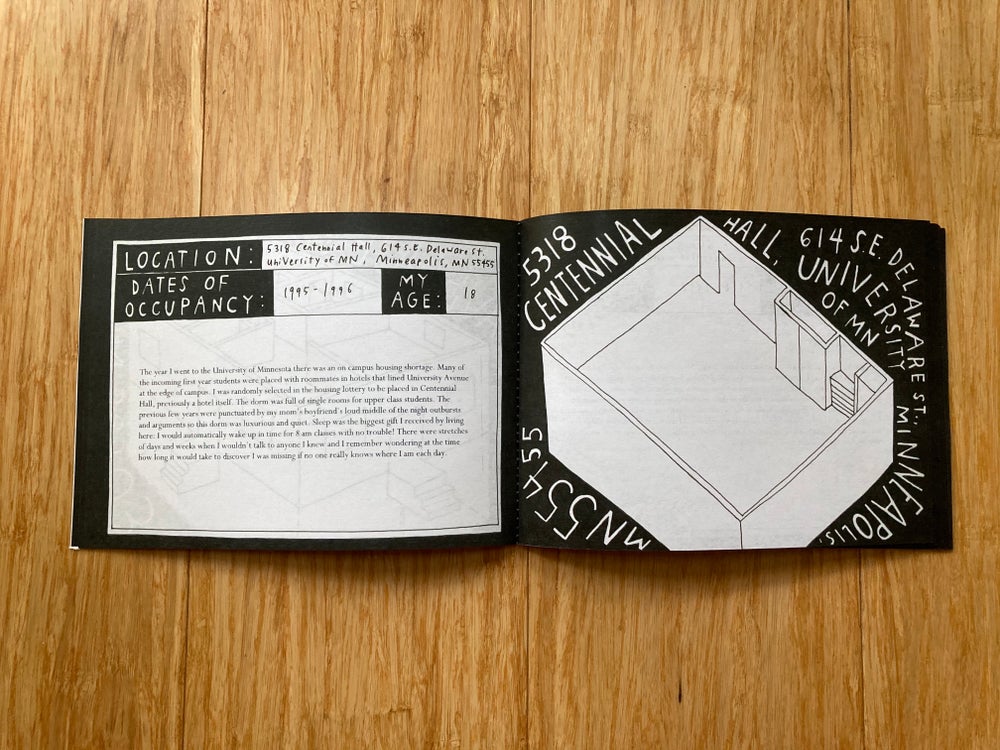 LOCATION: 5318 Centennial Hall, 614 S.E. Delaware St.
University of MN, Minneapolis, MN 55455
DATES OF OCCUPANCY: 1995-1996 MY AGE: 18
The year I went to the University of Minnesota there was an on campus housing shortage. Many of
the incoming first year students were placed with roommates in hotels that lined University Avenue
at the edge of campus. I was randomly selected in the housing lottery to be placed in Centennial
Hall, previously a hotel itself. The dorm was full of single rooms for upper class students. The
previous few years were punctuated by my mom's boyfriend's loud middle of the night outbursts
and arguments so this dorm was luxurious and quiet. Sleep was the biggest gift I received by living
here: I would automatically wake up in time for 8 am classes with no trouble! There were stretches
of days and weeks when I wouldn't talk to anyone I knew and I remember wondering at the time
how long it would take to discover I was missing if no one really knows where I am each day.
5318
CENTENNIAL
HALL, 614 S.E. DELAWARE ST.
UNIVERSITY
OF MN
MINNEAPOLIS,
MN 55455